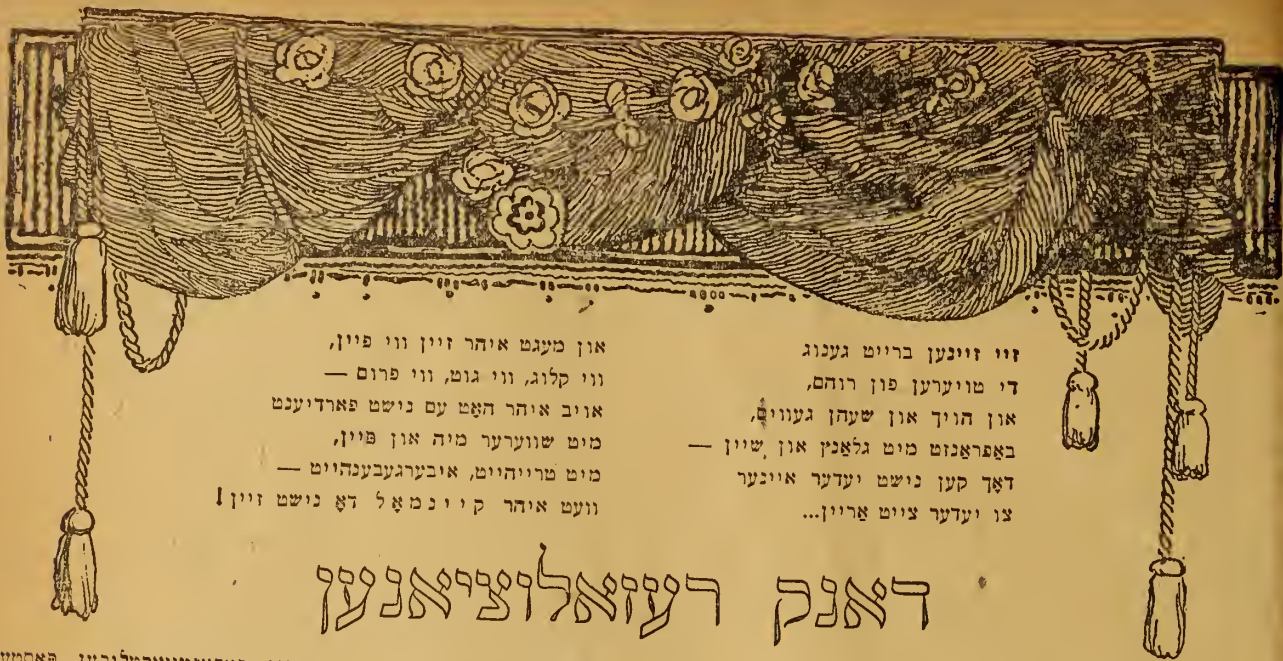 זיי זיינען ברייט גענוג
די טויערען פון רוהם,
און הויך און שעהן געוויס,
באַפראַנזט מיט גלאַנץ און שיין —
דאָך קען נישט יעדער איינער
צו יעדער צייט אַריין...
און מעגט איהר זיין ווי פיין,
ווי קלוג, ווי גוט, ווי פרום —
אויב איהר האָט עס נישט פארדיענט
מיט שווערער מיה און פּיין,
מיט טרייהייט, איבערגעבענהייט —
וועט איהר קיינמאָל דאָ נישט זיין!
דאנק רעזאלוציאנען